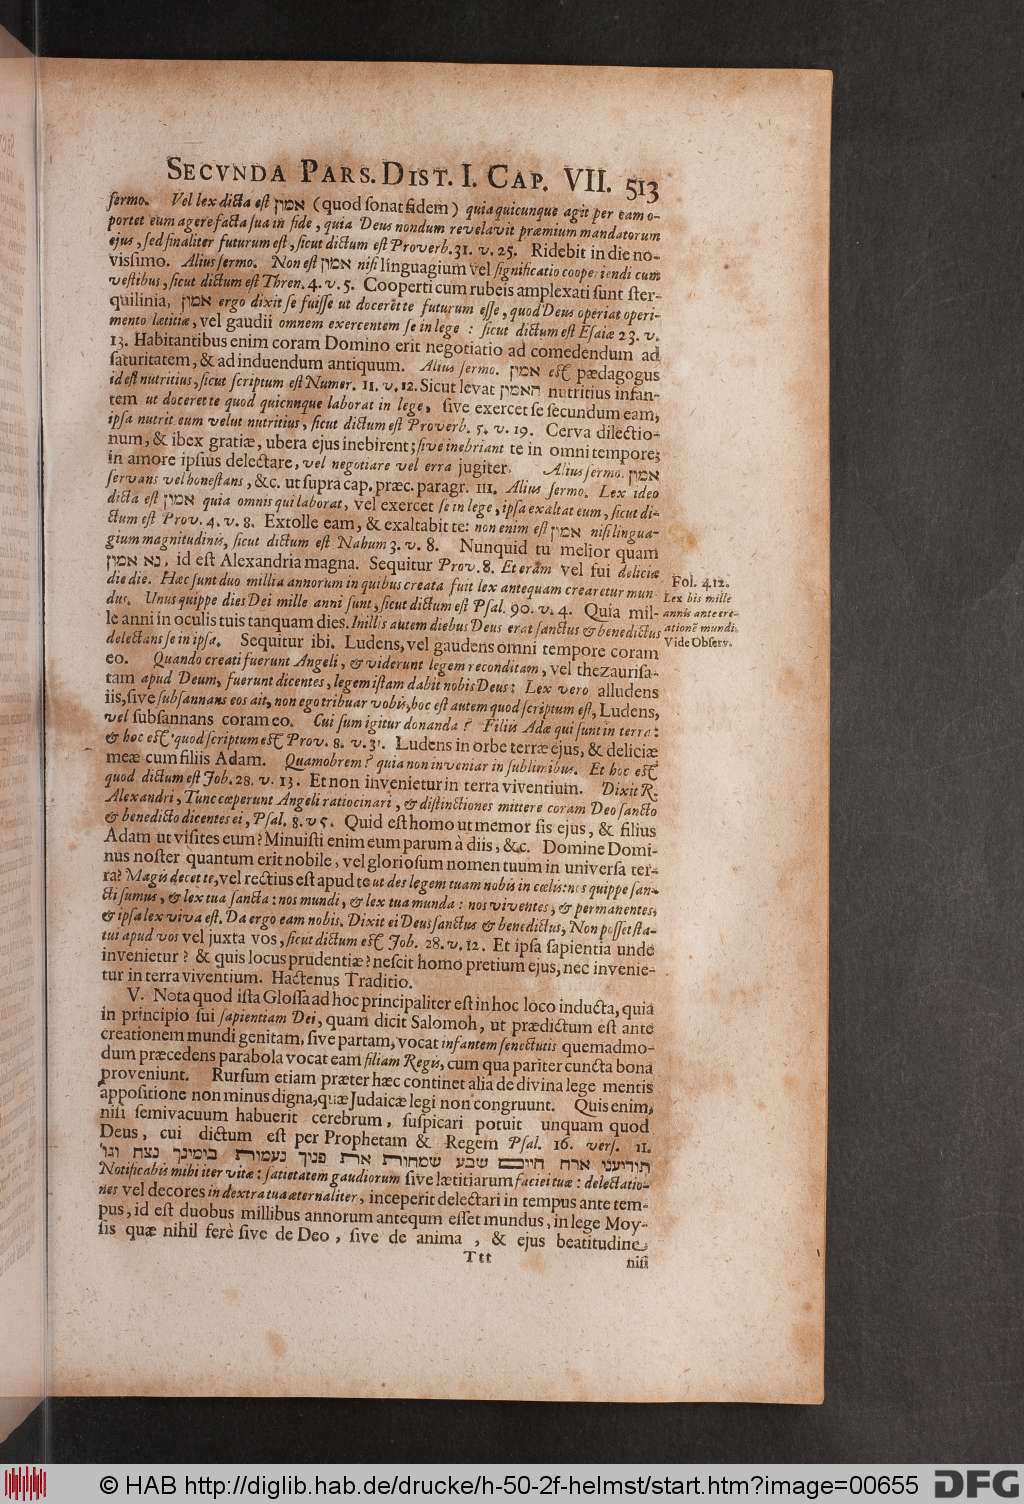 SECVNDA PARS. DIST. I. CAP. VII. 513
sermo. Vel lex dicta est אמון (quod sonat fidem) quia quicunque agit per eam o-
portet eum agere facta sua in fide, quia Deus nondum revelavit præmium mandatorum
ejus, sed finaliter futurum est, sicut dictum est Proverb. 31. v. 25. Ridebit in die no-
vissimo. Alius sermo. Non est אמון nisi linguagium vel significatio cooperiendi cum
vestibus, sicut dictum est Thren. 4. v. 5. Cooperti cum rubeis amplexati sunt ster-
quilinia, אמון ergo dixit se fuisse ut docerẽt te futurum esse, quod Deus operiat operi-
mento lætitiæ, vel gaudii omnem exercentem se in lege : sicut dictum est Esaiæ 23. v.
13. Habitantibus enim coram Domino erit negotiatio ad comedendum ad
saturitatem, & ad induendum antiquum. Alius sermo. אמון est pædagogus
id est nutritius, sicut scriptum est Numer. 11. v. 12. Sicut levat האמון nutritius infan-
tem ut doceret te quod quicunque laborat in lege, sive exercet se secundum eam,
ipsa nutrit eum velut nutritius, sicut dictum est Proverb. 5. v. 19. Cerva dilectio-
num, & ibex gratiæ, ubera ejus inebrient; sive inebriant te in omni tempore;
in amore ipsius delectare, vel negotiare vel erra jugiter. Alius sermo. אמון
servans vel honestans, &c. ut supra cap. præc. paragr. III. Alius sermo. Lex ideo
dicta est אמון quia omnis qui laborat, vel exercet se in lege, ipsa exaltat eum, sicut di-
ctum est Prov. 4. v. 8. Extolle eam, & exaltabit te: non enim est אמון nisi lingua-
gium magnitudinis, sicut dictum est Nahum 3. v. 8. Nunquid tu melior quam
נא אמון, id est Alexandria magna. Sequitur Prov. 8. Et eram vel fui deliciæ
die die. Hæc sunt duo millia annorum in quibus creata fuit lex antequam crearetur mun
dus. Unus quippe dies Dei mille anni sunt, sicut dictum est Psal. 90. v. 4. Quia mil-
le anni in oculis tuis tanquam dies. In illis autem diebus Deus erat sanctus & benedictus
delectans se in ipsa. Sequitur ibi. Ludens, vel gaudens omni tempore coram
eo. Quando creati fuerunt Angeli, & viderunt legem reconditam, vel thezaurisa-
tam apud Deum, fuerunt dicentes, legem istam dabit nobis Deus: Lex vero alludens
iis, sive subsannans eos ait, non ego tribuar vobis, hoc est autem quod scriptum est, Ludens,
vel subsannans coram eo. Cui sum igitur donanda? Filiis Adæ qui sunt in terra:
& hoc est quod scriptum est Prov. 8. v. 31. Ludens in orbe terræ ejus, & deliciæ
meæ cum filiis Adam. Quamobrem? quia non inveniar in sublimibus. Et hoc est
quod dictum est Job. 28. v. 13. Et non invenietur in terra viventium. Dixit R.
Alexandri, Tunc cœperunt Angeli ratiocinari, & distinctiones mittere coram Deo sancto
& benedicto dicentes ei, Psal. 8. v 5. Quid est homo ut memor sis ejus, & filius
Adam ut visites eum? Minuisti enim eum parum à diis, &c. Domine Domi-
nus noster quantum erit nobile, vel gloriosum nomen tuum in universa ter-
ra? Magis decet te, vel rectius est apud te ut des legem tuam nobis in cœlis: nos quippe san-
cti sumus, & lex tua sancta: nos mundi, & lex tua munda: nos viventes, & permanentes,
& ipsa lex viva est. Da ergo eam nobis. Dixit ei Deus sanctus & benedictus, Non posset sta-
tus apud vos vel juxta vos, sicut dictum est Job. 28. v. 12. Et ipsa sapientia unde
invenietur? & quis locus prudentiæ? nescit homo pretium ejus, nec invenie-
tur in terra viventium. Hactenus Traditio.
V. Nota quod ista Glossa ad hoc principaliter est in hoc loco inducta, quia
in principio sui sapientiam Dei, quam dicit Salomoh, ut prædictum est ante
creationem mundi genitam, sive partam, vocat infantem senectutis quemadmo-
dum præcedens parabola vocat eam filiam Regis, cum qua pariter cuncta bona
proveniunt. Rursum etiam præter hæc continet alia de divina lege mentis
appositione non minus digna, quæ Judaicæ legi non congruunt. Quis enim,
nisi semivacuum habuerit cerebrum, suspicari potuit unquam quod
Deus, cui dictum est per Prophetam & Regem Psal. 16. vers. 11.
תודיעני ארח חיים שבע שמחות את פניך נעמות בימינך נצח וגו'
Notificabis mihi iter vitæ: satietatem gaudiorum sive lætitiarum faciei tuæ: delectatio-
nes vel decores in dextra tua æternaliter, inceperit delectari in tempus ante tem-
pus, id est duobus millibus annorum antequm esset mundus, in lege Moy-
sis quæ nihil ferè sive de Deo, sive de anima, & ejus beatitudine
Ttt nisi
Fol. 412.
Lex bis mille
annis ante cre-
ationẽ mundi.
Vide Observ.
© HAB http://diglib.hab.de/drucke/h-50-2f-helmst/start.htm?image=00655 DFG